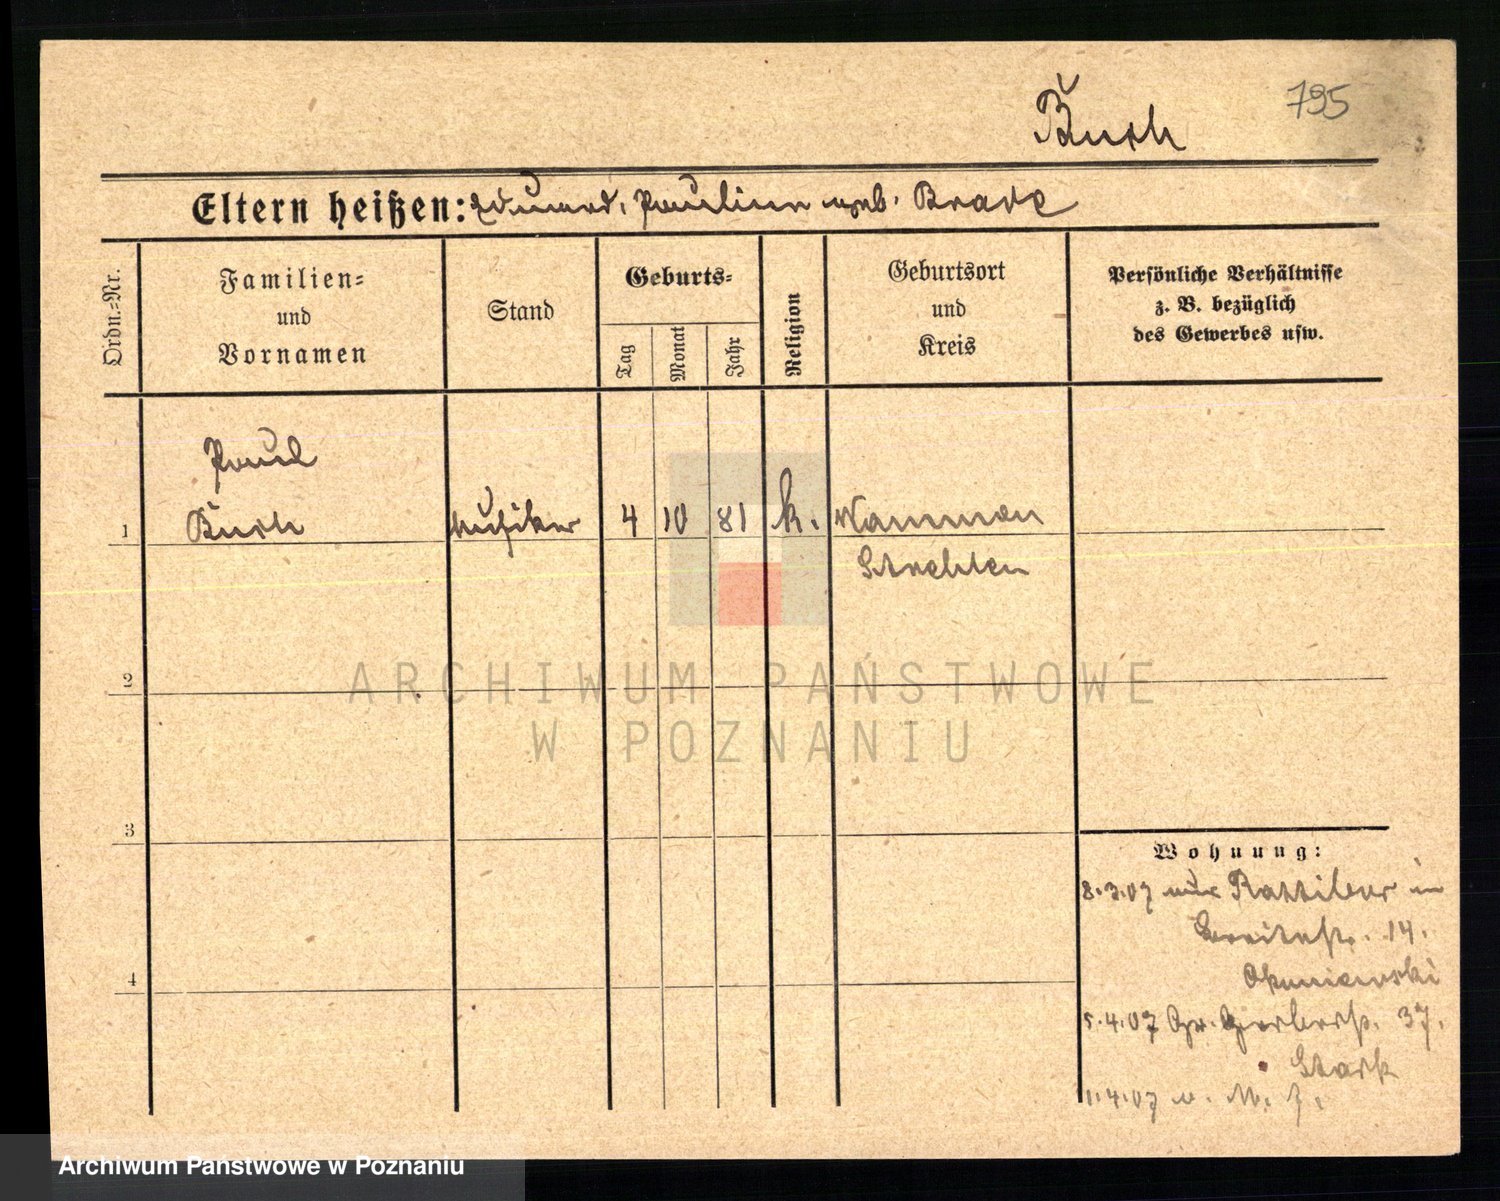 795
Eltern heißen: Eduard, Pauline geb. Brade
Ordn.-Nr.
Familien-
und
Vornamen
Stand
Geburts-
Tag
Monat
Jahr
Religion
Geburtsort
und
Kreis
Persönliche Verhältnisse
z. B. bezüglich
des Gewerbes usw.
Paul
1
Musiker
4
10
81
k.
Strehlen
2
3
4
Wohnung:
8.3.07 aus Rattibor in
Breitestr. 14.
5.4.07 Gr. Gerberstr. 37.
Stark
ARCHIWUM PAŃSTWOWE
W POZNANIU
Archiwum Państwowe w Poznaniu